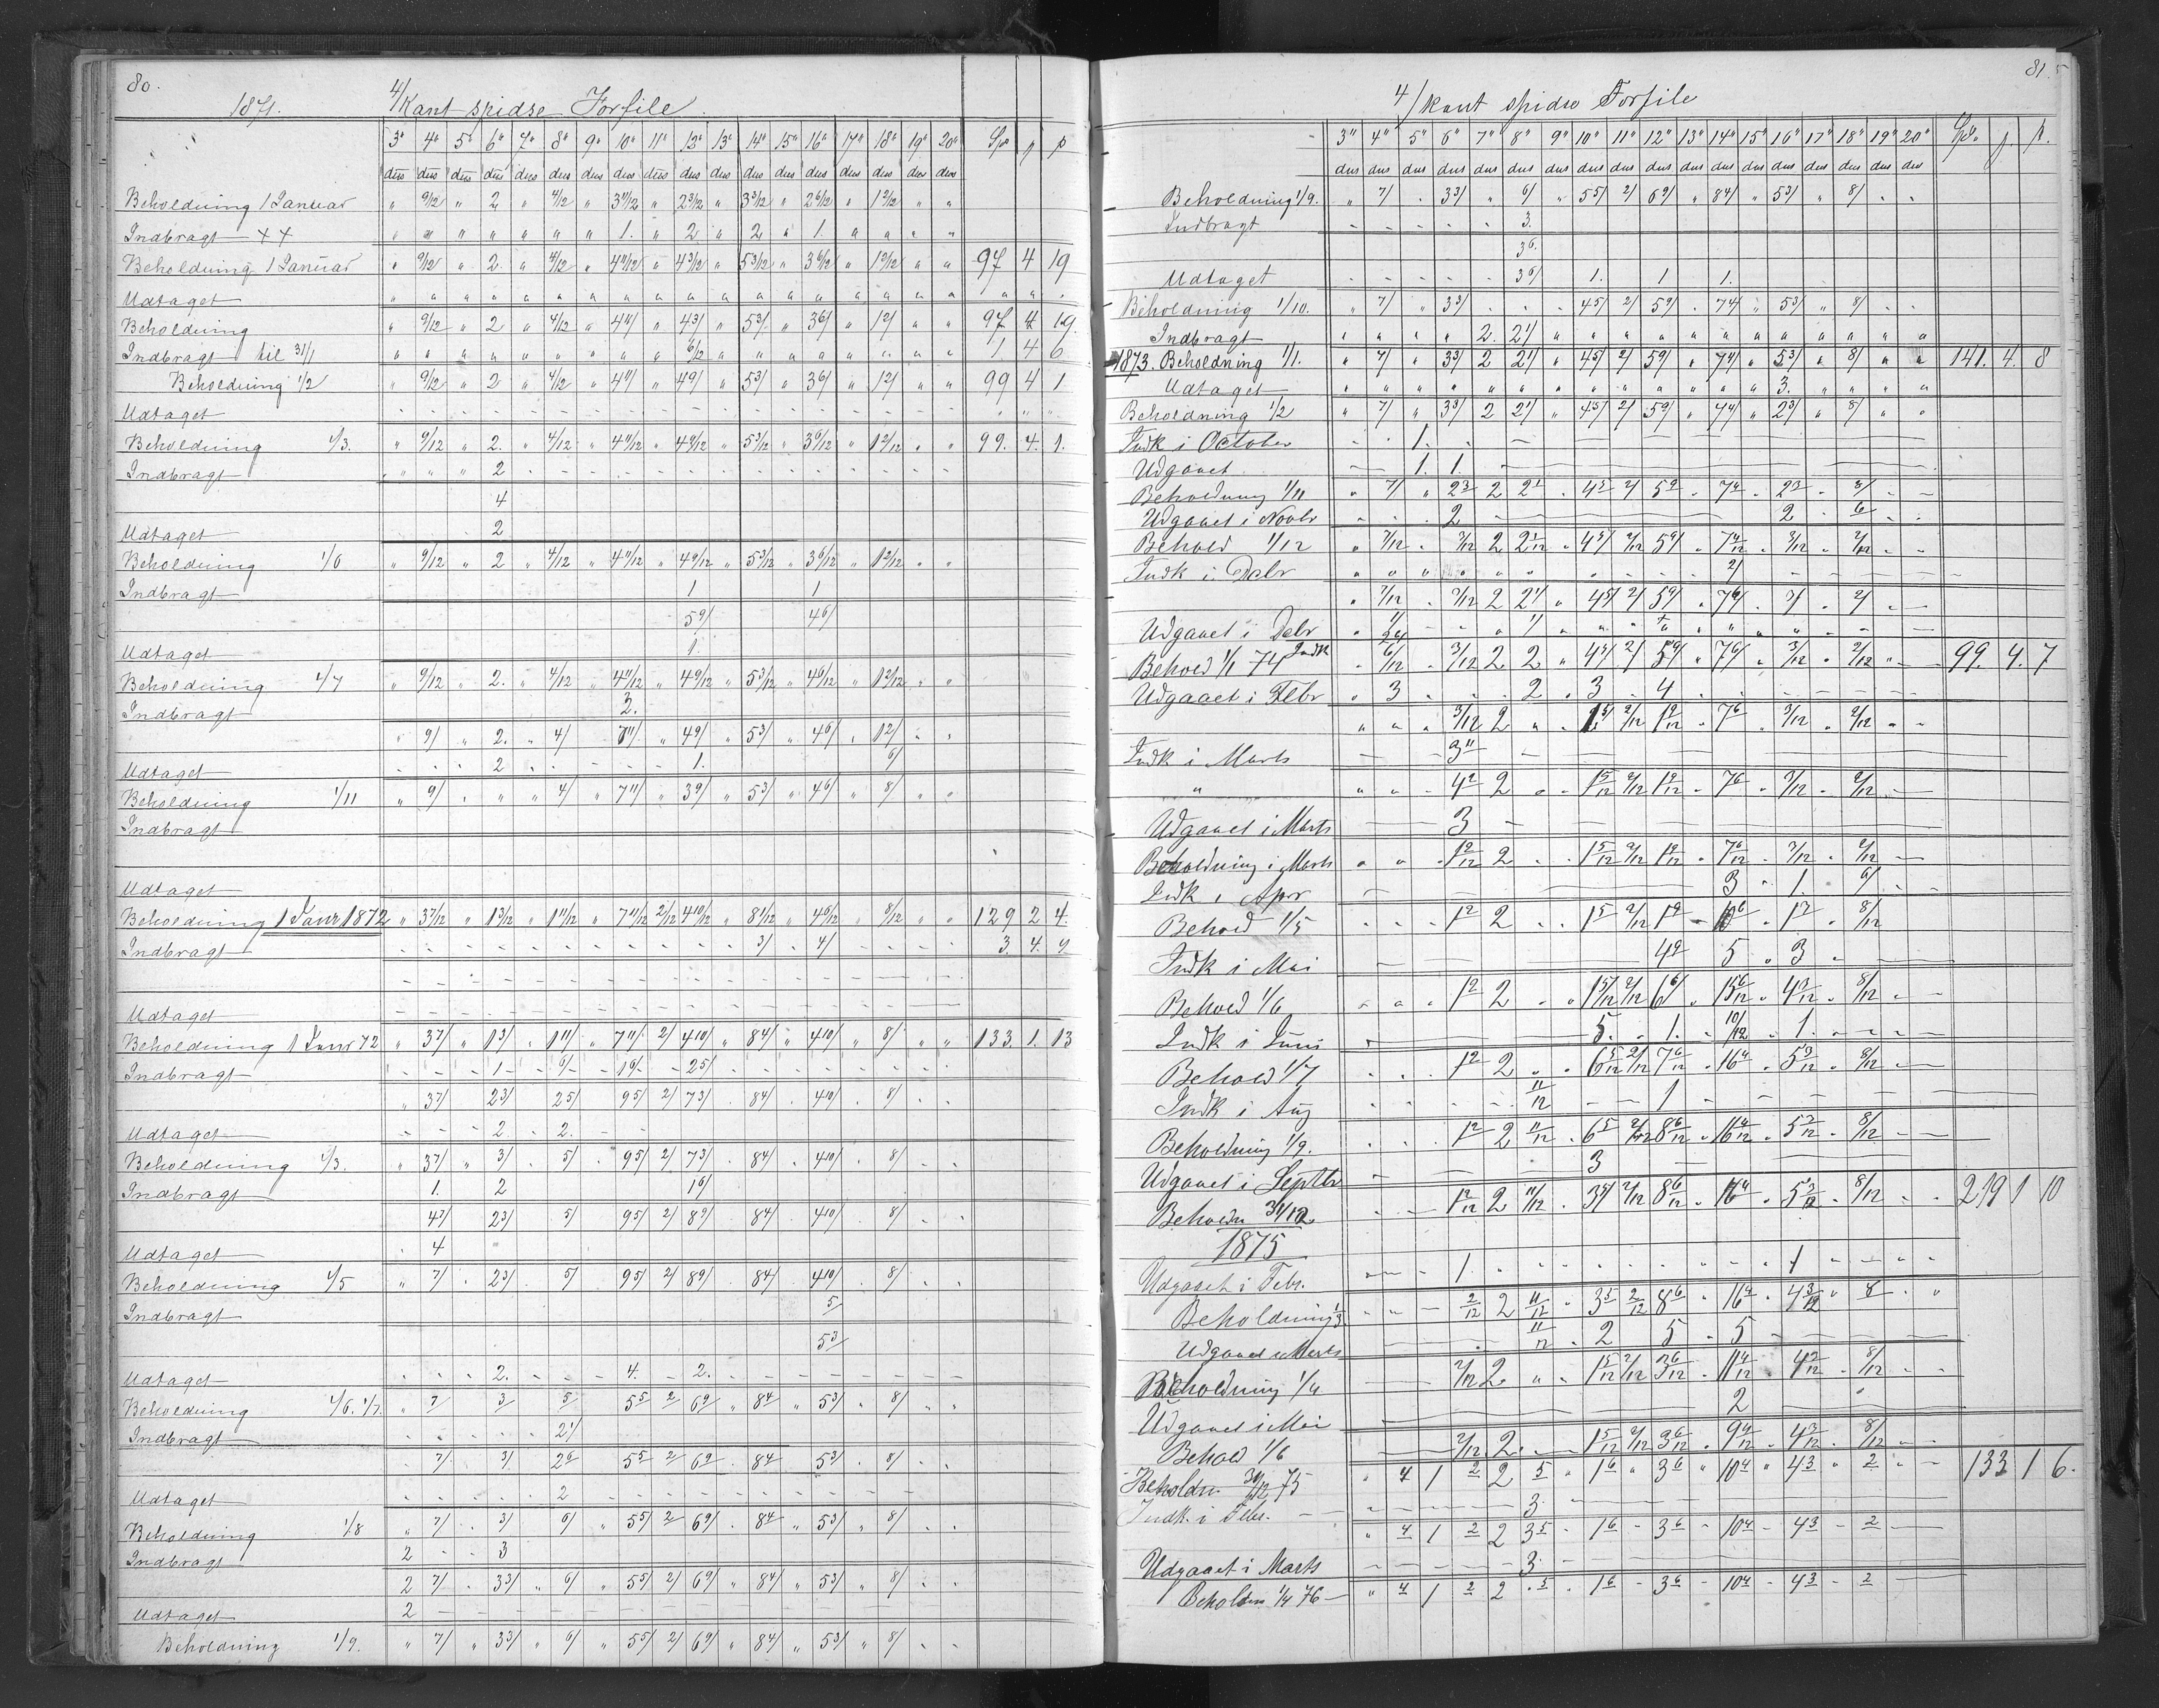 80.
1871. 4/Kant spidse Forfile.
3" 4" 5" 6" 7" 8" 9" 10" 11" 12" 13" 14" 15" 16" 17" 18" 19" 20" Sp
dus dus dus dus dus dus dus dus dus dus dus dus dus dus dus dus dus dus
Beholdning 1 Januar " 9/12 " 2 " 4/12 " 3 11/12 " 2 9/12 " 3 3/12 " 2 6/12 " 1 2/12 " "
Indbragt ++ " " " " " " " 1. " 2 " 2 " 1. " " " "
Beholdning 1 Januar " 9/12 " 2 " 4/12 " 4 11/12 " 4 3/12 " 5 3/12 " 3 6/12 " 1 2/12 " " 97 4 19
Udtaget
Beholdning " 9/12 " 2 " 4/12 " 4 11/ " 4 3/ " 5 3/ " 3 6/ " 1 2/ " " 97 4 19.
Indbragt til 31/1 6/12 1. 4 6
Beholdning 1/2 " 9/12 " 2 " 4/12 " 4 11/ " 4 9/ " 5 3/ " 3 6/ " 1 2/ " " 99 4 1
Udtaget
Beholdning 1/3. " 9/12 " 2. " 4/12 " 4 11/12 " 4 9/12 " 5 3/12 " 3 6/12 " 1 2/12 " " 99. 4. 1.
Indbragt 2
4
Udtaget 2
Beholdning 1/6 " 9/12 " 2 " 4/12 " 4 11/12 " 4 9/12 " 5 3/12 " 3 6/12 " 1 2/12 " "
Indbragt 1 1
5 9/ 4 6/
Udtaget 1.
Beholdning 1/7 " 9/12 " 2. " 4/12 " 4 11/12 " 4 9/12 " 5 3/12 " 4 6/12 " 1 2/12 " "
Indbragt 3.
" 9/ " 2. " 4/ 7 11/ " 4 9/ " 5 3/ " 4 6/ " 1 2/ " "
Udtaget 2 1. 6/
Beholdning 1/11 " 9/ " " " 4/ " 7 11/ " 3 9/ " 5 3/ " 4 6/ " 8/ " "
Indbragt
Udtaget
Beholdning 1 Janr 1872 " 3 7/12 " 1 3/12 " 1 11/12 " 7 11/12 2/12 4 10/12 " 8 1/12 " 4 6/12 " 8/12 " " 129 2 4.
Indbragt 3/ 4/ 3. 4. 9
Udtaget
Beholdning 1 Janr 72 " 3 7/ " 1 3/ " 1 11/ " 7 11/ 2/ 4 10/ " 8 4/ " 4 10/ " 8/ " " 133. 1. 13
Indbragt 1 6/ 1 6/ 2 5/
" 3 7/ 2 3/ 2 5/ 9 5/ 2/ 7 3/ 8 4/ 4 10/ 8/
Udtaget 2. 2.
Beholdning 1/3. " 3 7/ " 3/ 5/ 9 5/ 2/ 7 3/ 8 4/ 4 10/ 8/
Indbragt 1. 2 1 6/
4 7/ 2 3/ 5/ 9 5/ 2/ 8 9/ 8 4/ 4 10/ 8/
Udtaget 4
Beholdning 1/5 " 7/ 2 3/ 5/ 9 5/ 2/ 8 9/ 8 4/ 4 10/ 8/
Indbragt 5/
5 3/
Udtaget 2. 4. 2.
Beholdning 1/6. 1/7. " 7 3/ 5/ 5 5 2 6 9 " 8 4 " 5 3/ 8/
Indbragt 2 1/
7/ 3/ 2 6 5 5 2 6 9 8 4 5 3/ 8/
Udtaget 2
Beholdning 1/8 " 7/ 3/ 6/ " 5 5/ 2 6 9/ 8 4 " 5 3/ " 8/
Indbragt 2 3
2 7/ 3 3/ " 6/ " 5 5/ 2/ 6 9/ " 8 4/ " 5 3/ " 8/
Udtaget 2
Beholdning 1/9. " 7/ " 3 3/ " 6/ " 5 5/ 2/ 6 9/ " 8 4/ " 5 3/ " 8/
81.
4/kant spidse Forfile
3" 4" 5" 6" 7" 8" 9" 10" 11" 12" 13" 14" 15" 16" 17" 18" 19" 20"
dus dus dus dus dus dus dus dus dus dus dus dus dus dus dus dus dus dus
Beholdning 1/9. " 7/ 3 3/ " 6/ " 5 5/ 2/ 6 9/ " 8 4/ " 5 3/ " 8/
Indbragt 3.
3 6.
Udtaget 3 6/ 1. 1 1.
Beholdning 1/10. " 7/ " 3 3/ 4 5/ 2/ 5 9/ 7 4/ " 5 3/ " 8/
Indbragt 2. 2 1/
1873. Beholdning 1/1. " 7/ " 3 3/ 2 2 1/ " 4 5/ 2/ 5 9/ " 7 4/ " 5 3/ " 8/ " " 141. 4. 8
Udtaget 3.
Beholdning 1/2 " 7/ " 3 3/ 2 2 1/ " 4 5/ 2/ 5 9/ " 7 4/ " 2 3/ " 8/
Indk i October 1.
Udgaaet 1. 1.
Beholdning 1/11 " 7/ " 2 3 2 2 1 4 5 2/ 5 9 7 4 2 3 8/
Udgaaet i Novbr 2 2 6
Behold 1/12 " 7/12 3/12 2 2 1/12 4 5/ 2/12 5 9/ 7 4/12 3/12 2/12
Indk i Debr 2/
" 7/12 3/12 2 2 1/ " 4 5/ 2/ 5 9/ 7 6/ 3/ 2/
Udgaaet i Debr 1/
Behold 1/1 74 Indk 6/12 3/12 2 2 " 4 5/ 2/ 5 9/ 7 6/ 3/12 2/12 99. 4. 7
Udgaaet i Febr 3 2 3 4
3/12 2 1 5/ 2/12 1 9/12 7 6 3/12 2/12
Indk i Marts 3 11
" 4 2 2 1 5/12 2/12 1 9/12 7 6 3/12 2/12
Udgaaet i Marts 3
Beholdning i Marts 1 2/12 2 1 5/12 2/12 1 9/12 7 6/12 3/12 2/12
Indk i Apr 3 1. 6/
Behold 1/5 1 2 2 1 5 2/12 1 9 10 6 1 3 8/12
Indk i Mai 4 9 5 3
Behold 1/6 1 2 2 1 5/12 2/12 6 6/ 15 6/12 4 3/12 8/12
Indk i Juni 5. 1. 10/12 1.
Behold 1/7 1 2 2 6 5/12 2/12 7 6/12 16 4 5 3/12 8/12
Indk i Aug 11/12 1
Beholdning 1/9. 1 2 2 11/12 6 5 2/12 8 6/12 16 4/12 5 3/12 8/12
Udgaaet i Septbr 3
Beholdn 31/12 1 2/12 2 11/12 3 5/ 2/12 8 6/12 16 4 5 3/12 8/12 219 1 10
1875
Udgaaet i Febr. 1 1
Beholdning 1/3. 2/12 2 11/12 3 5 2/12 8 6 16 4 4 3/12 8
Udgaaet i Marts 11/12 2 5 5
Beholdning 1/4 2/12 2 1 5/12 2/12 3 6/12 11 4/12 4 3/12 8/12
Udgaaet i Mai 2
Behold 1/6 2/12 2 1 5/12 2/12 3 6/12 9 4/12 4 3/12 8/12
Beholdn 31/12 75 " 4 1 2 2 5 " 1 6 " 3 6 " 10 4 " 4 3 " 2 133 1 6.
Indk. i Febr. 3
" 4 1 2 2 3 5 1 6 3 6 10 4 4 3 2
Udgaaet i Marts 3
Beholdn 1/4 76 " 4 1 2 2 5 1 6 3 6 10 4 4 3 2